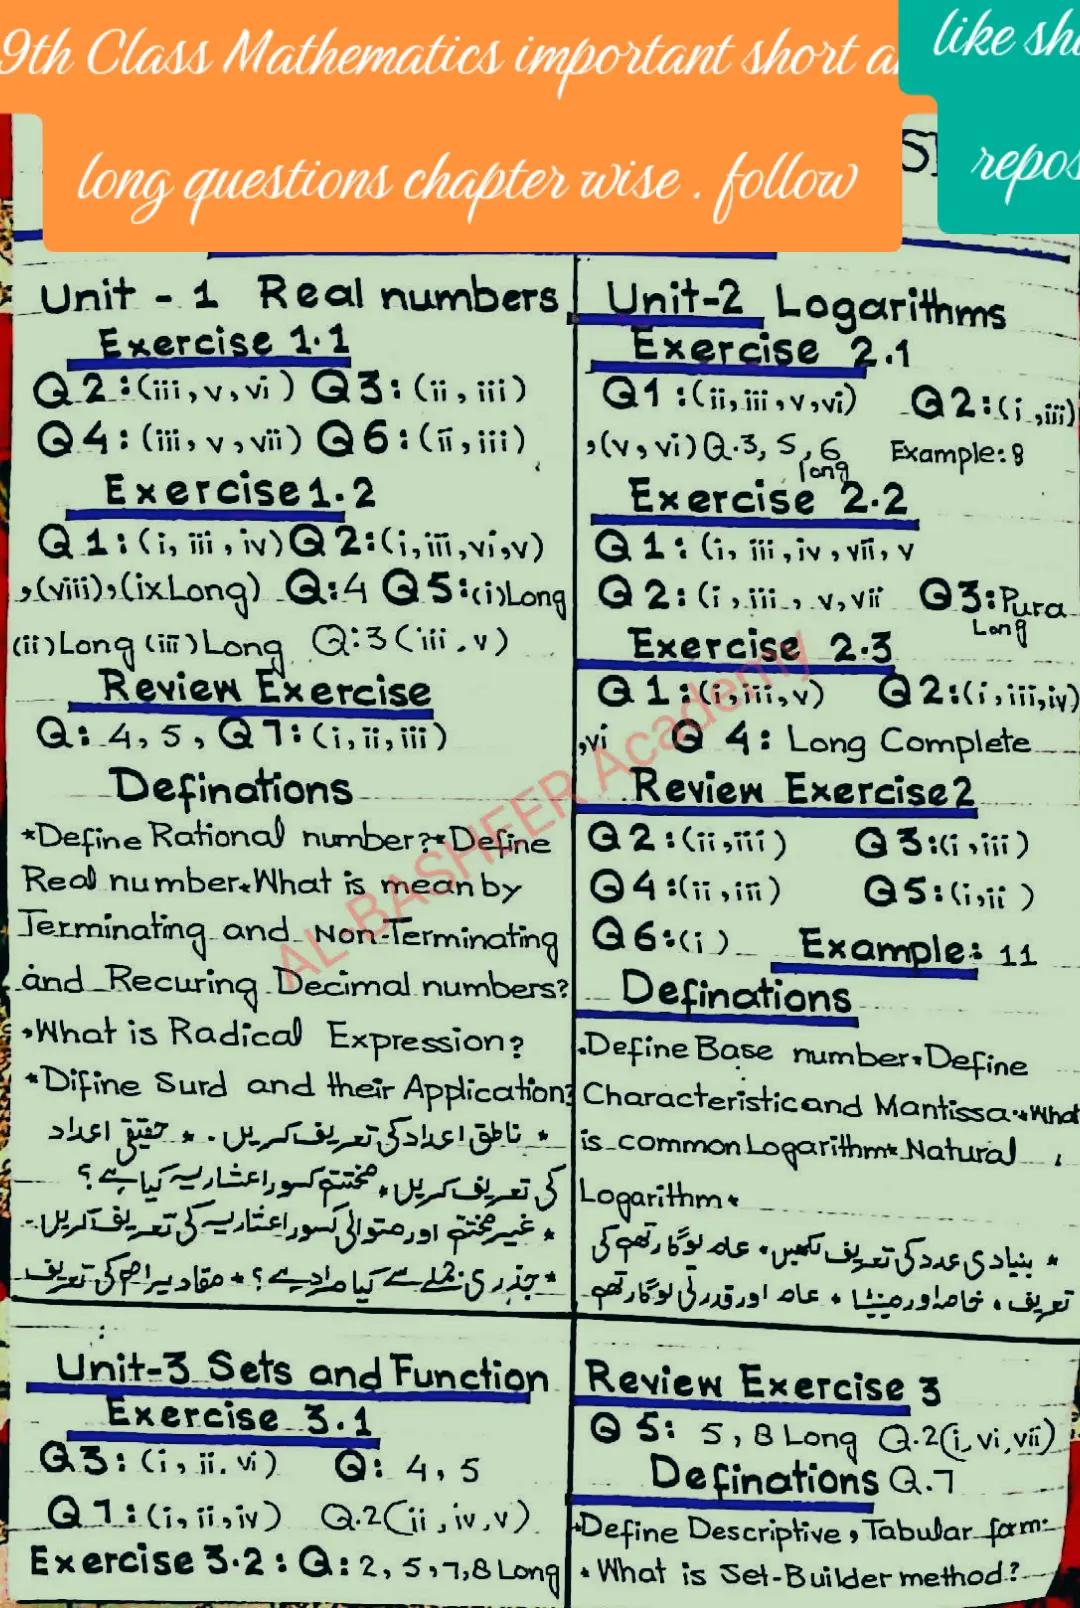 9th Class Mathematics important short a
long questions chapter wise . follow
like sh
repos
Unit - 1 Real numbers
Exercise 1.1
Q2:(iii,v,vi) Q3:(ii,iii)
Q4:(iii,v,vii) Q6:(ii,iii)
Exercise 1.2
Q1:(i,iii,iv) Q2:(i,iii,vi,v)
,(viii),(ix Long) Q:4 Q5:(i)Long
(ii)Long (iii)Long Q:3(iii,v)
Review Exercise
Q: 4,5, Q7:(i,ii,iii)
Definations
*Define Rational number?*Define
Real number.What is mean by
Terminating and Non-Terminating
and Recuring Decimal numbers?
What is Radical Expression?
*Difine Surd and their Application?
* ناطق اعداد کی تعریف کریں. * حقیقی اعداد
کی تعریف کریں، مختتم کسور اعشاریہ کیا ہے؟
* غیر مختتم اور متوالی کسور اعشاریہ کی تعریف کریں-
* جذری جملے سے کیا مراد ہے؟ * مقادیر اصم کی تعریف
Unit-2 Logarithms
Exercise 2.1
Q1:(ii,iii,v,vi) Q2:(i,iii)
,(v,vi) Q.3, 5, 6 Example:8
long
Exercise 2.2
Q1:(i, iii,iv,vii, v
Q2:(i,iii, v,vii Q3:Pura
Long
Exercise 2.3
Q1:(i,iii,v) Q2:(i,iii,iv)
,vi Q 4: Long Complete
Review Exercise 2
Q2:(ii,iii) Q3:(i,iii)
Q4:(ii,iii) Q5:(i,ii )
Q6:(i) Example: 11
Definations
.Define Base number.Define
Characteristic and Mantissa.*What
is common Logarithm* Natural
Logarithm*
* بنیادی عدد کی تعریف لکھیں، عام لوگارتھم کی
تعریف، خاصہ اور مینٹسا، عام اور قدرتی لوگارتھم
AL-BASHEER Academy
Unit-3 Sets and Function
Exercise 3.1
Q3:(i,ii.vi) Q: 4,5
Q1:(i,ii,iv) Q.2(ii,iv,v)
Exercise 3.2: Q:2,5,7,8 Long
Review Exercise 3
Q 5: 5,8 Long Q.2(i,vi,vii)
Definations Q.7
Define Descriptive, Tabular form:
* What is Set-Builder method?